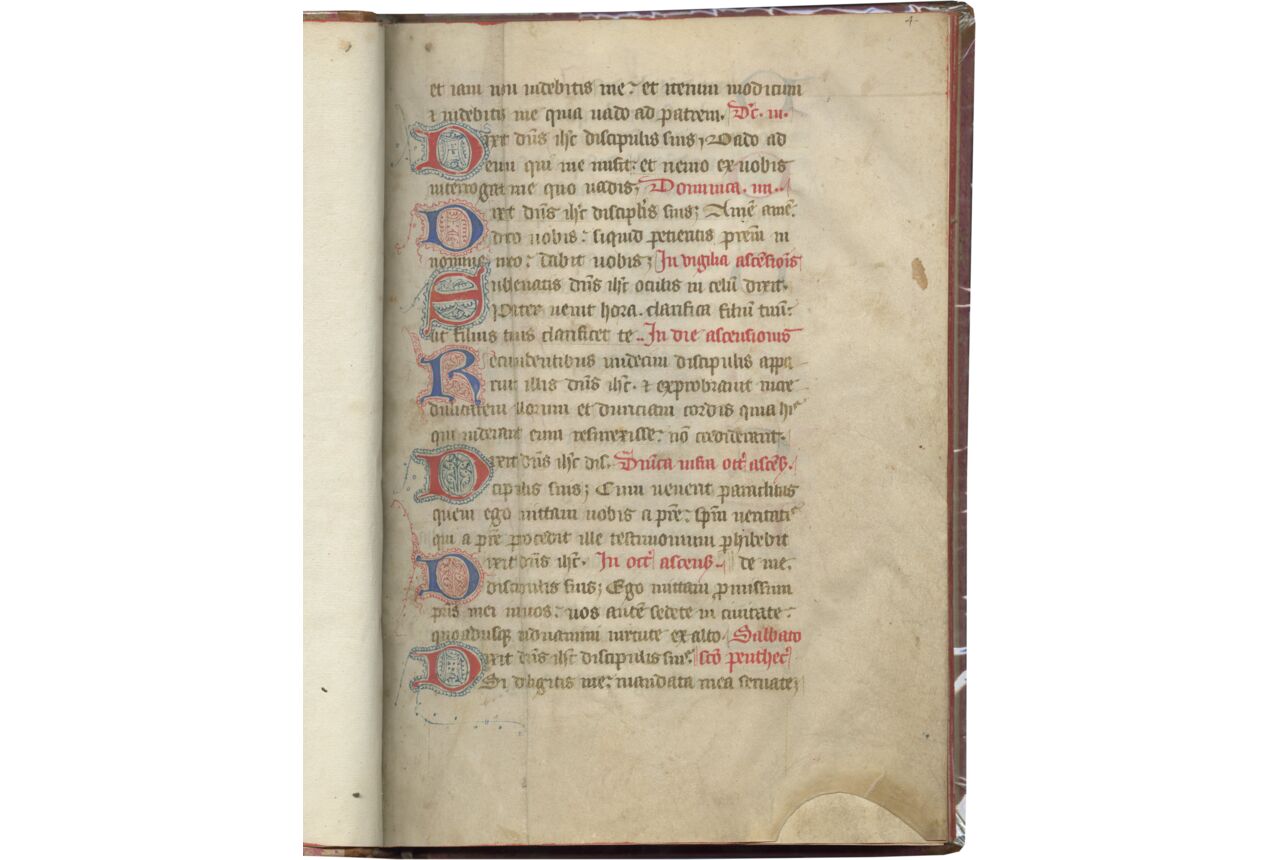 4
et iam non uidebitis me: et iterum modicum
⁊ uidebitis me quia uado ad patrem. Dc̄. iii.
Dixit dn̄s ih̄c discipulis suis, Vado ad
eum qui me misit: et nemo ex uobis
interrogat me quo uadis; Dominica. iiii.
Dixit dn̄s ih̄c discipl̄is suis; Amē amē.
dico uobis: siquid petieritis prēm in
nomine meo: dabit uobis; In vigilia ascēsiōis
Subleuatis dn̄s ih̄c oculis in celū dixit.
Pater uenit hora. clarifica filiū tuū:
ut filius tuus clarificet te. In die ascensionis
Recumbentibus undecim discipulis appa
ruit illis dn̄s ih̄c. ⁊ exprobrauit incre
dulitatem illorum et duriciam cordis quia hiis
qui uiderant eum resurrexisse: nō crediderant.
Dixit dn̄s ih̄c dis. Dn̄ica infra oct̄ ascēs.
cipulis suis; Cum uenerit paraclitus
quem ego mittam uobis a pr̄e: spm̄ ueritatis
qui a pr̄e procedit ille testimonium phibebit
Dixit dn̄s ih̄c. In oct̄ ascens. de me.
discipulis suis; Ego mittam promissum
pr̄is mei in uos: uos autē sedete in ciuitate:
quoadusq induamini uirtute ex alto. Sabbato
Dixit dn̄s ih̄c discipulis suis. sc̄o penthec̄
Si diligitis me: mandata mea seruate;